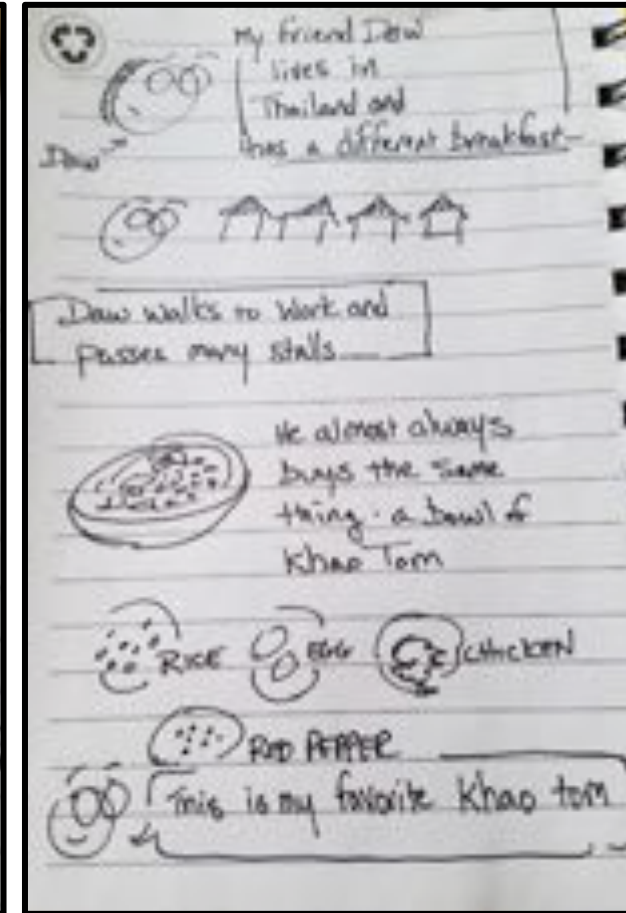 My friend Daw
lives in
Thailand and
has a different breakfast
Daw
Daw walks to work and
passes many stalls
He almost always
buys the same
thing. a bowl of
Khao Tom
RICE EGG CHICKEN
RED PEPPER
This is my favorite Khao tom